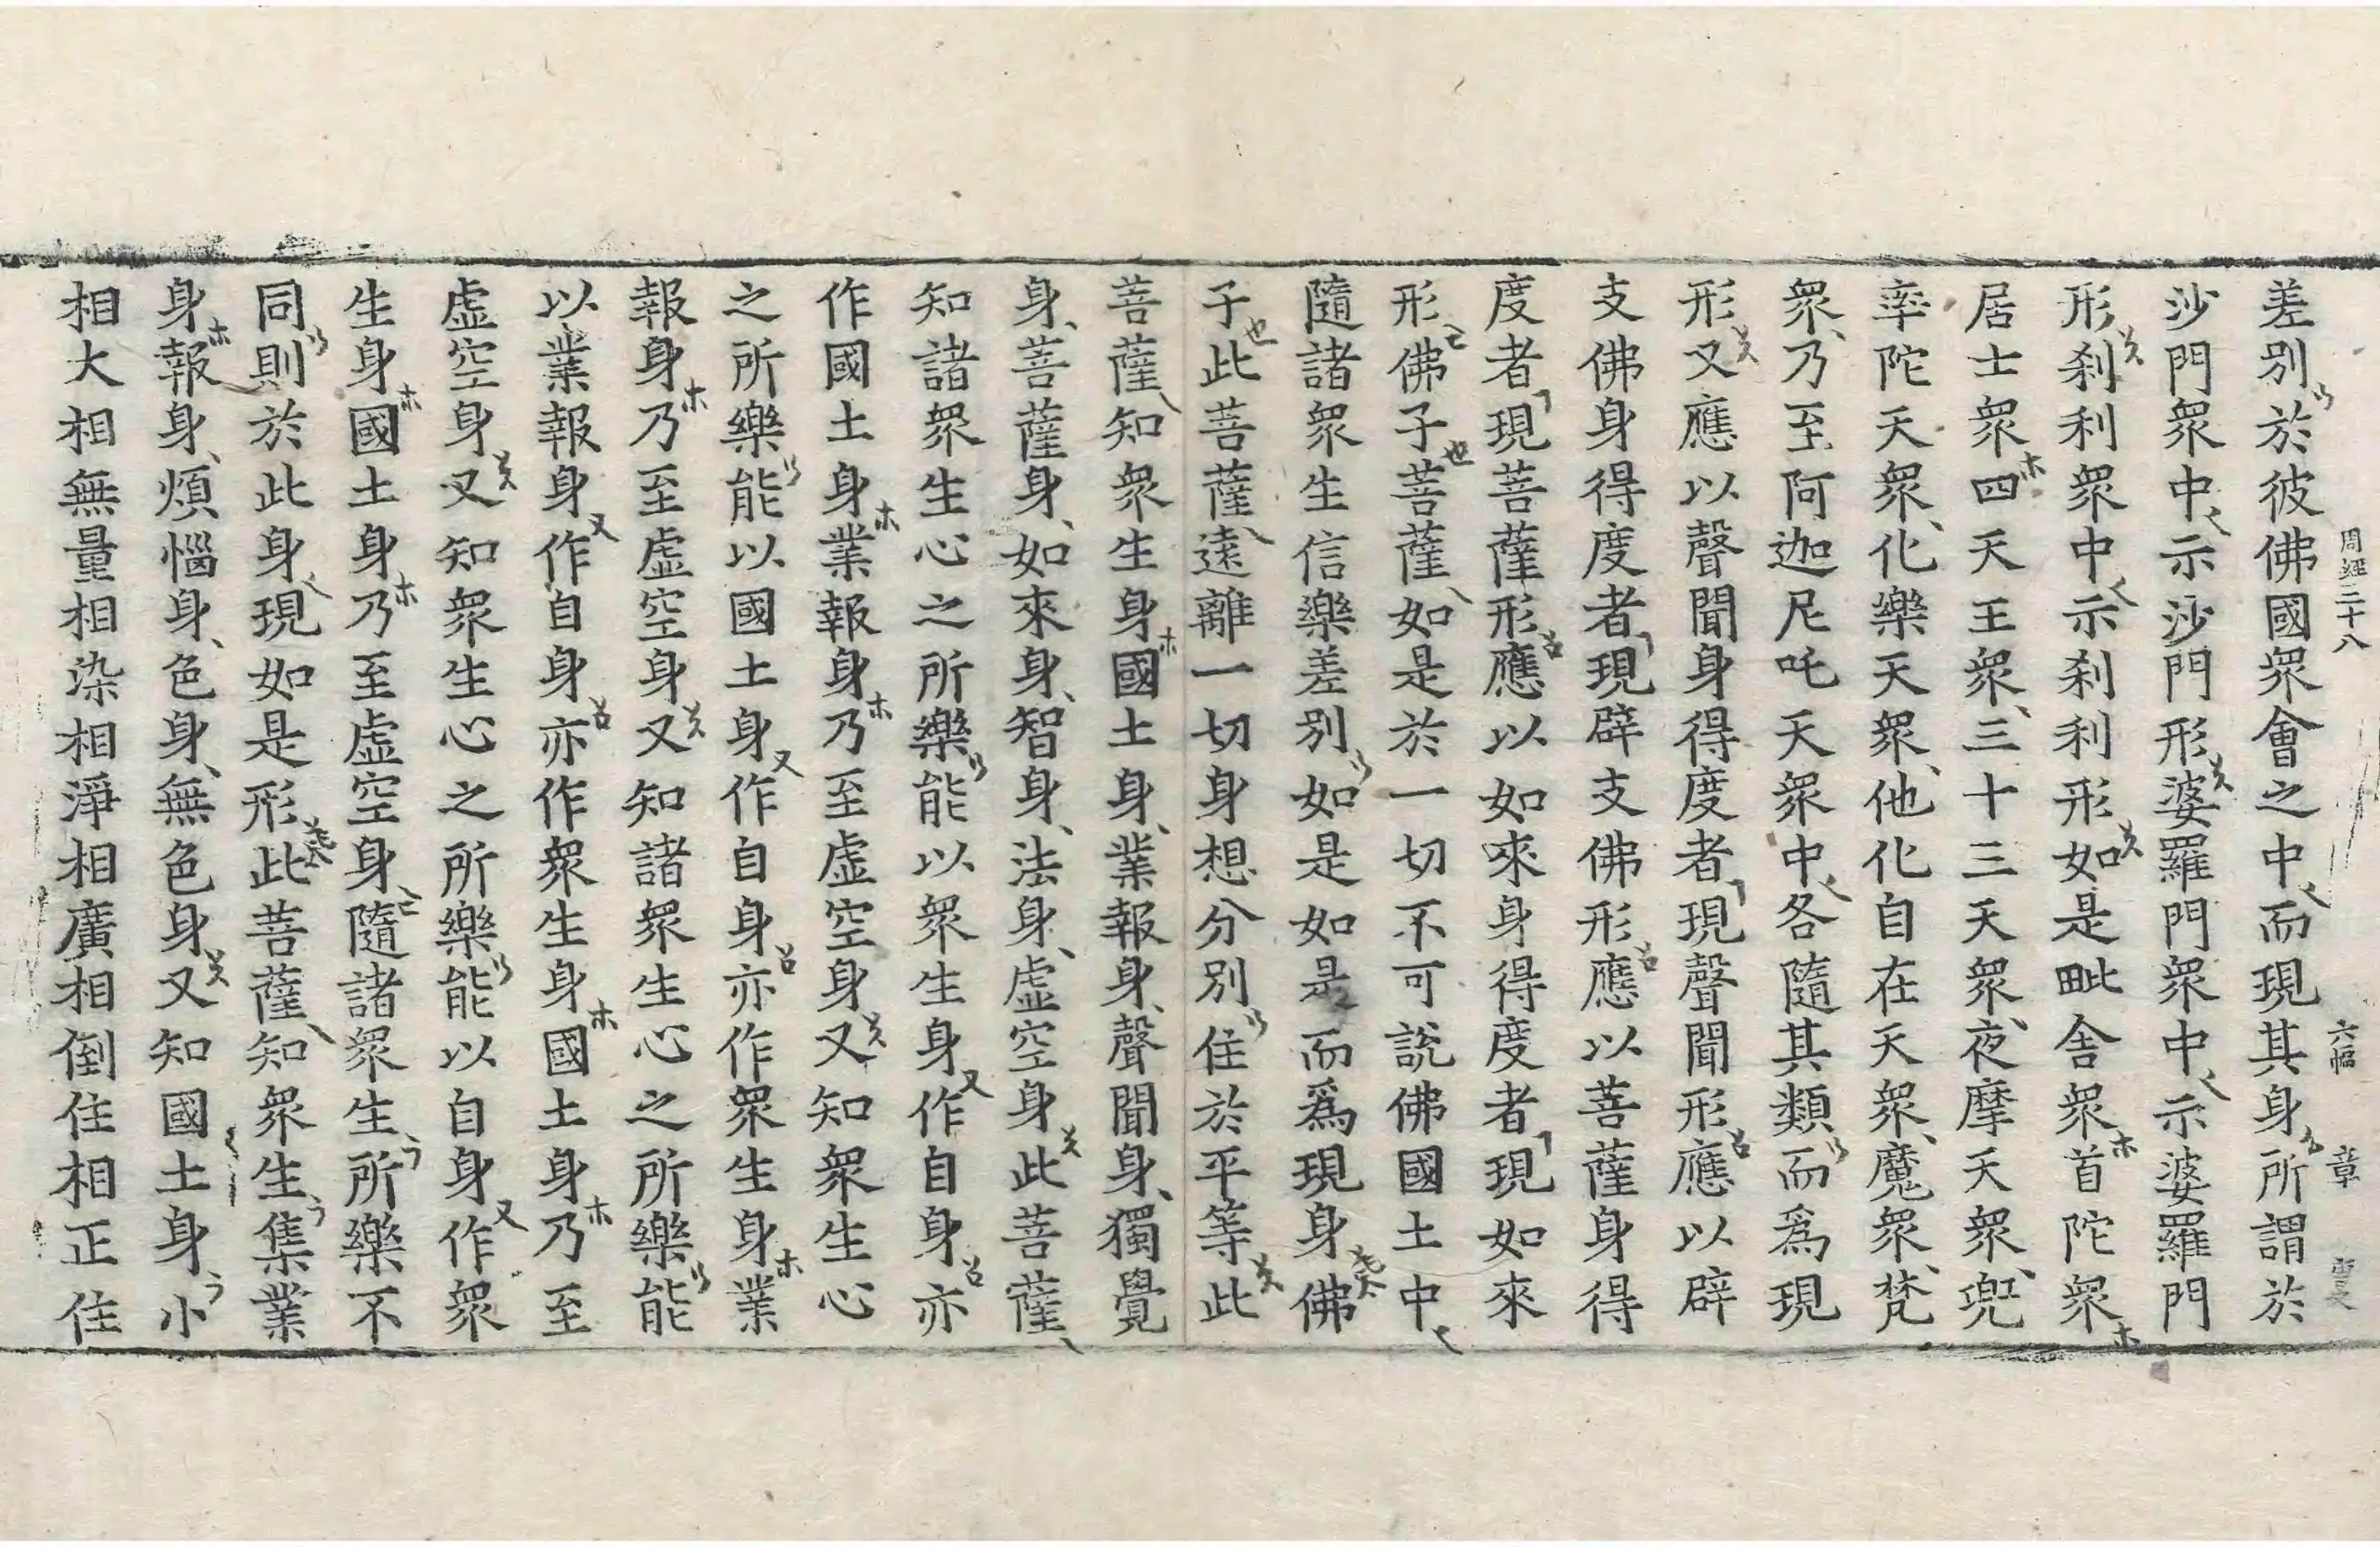 周經三十八 六幅 章
差別於彼佛國眾會之中而現其身所謂於
沙門眾中示沙門形婆羅門眾中示婆羅門
形刹利眾中示刹利形如是毗舍眾首陀眾
居士眾四天王眾三十三天眾夜摩天眾兜
率陀天眾化樂天眾他化自在天眾魔眾梵
眾乃至阿迦尼吒天眾中各隨其類而爲現
形又應以聲聞身得度者現聲聞形應以辟
支佛身得度者現辟支佛形應以菩薩身得
度者現菩薩形應以如來身得度者現如來
形佛子菩薩如是於一切不可說佛國土中
隨諸眾生信樂差別如是如是而爲現身佛
子此菩薩遠離一切身想分別住於平等此
菩薩知眾生身國土身業報身聲聞身獨覺
身菩薩身如來身智身法身虛空身此菩薩
知諸眾生心之所樂能以眾生身作自身亦
作國土身業報身乃至虛空身又知眾生心
之所樂能以國土身作自身亦作眾生身業
報身乃至虛空身又知諸眾生心之所樂能
以業報身作自身亦作眾生身國土身乃至
虛空身又知眾生心之所樂能以自身作眾
生身國土身乃至虛空身隨諸眾生所樂不
同則於此身現如是形此菩薩知眾生集業
身報身煩惱身色身無色身又知國土身小
相大相無量相染相淨相廣相倒住相正住